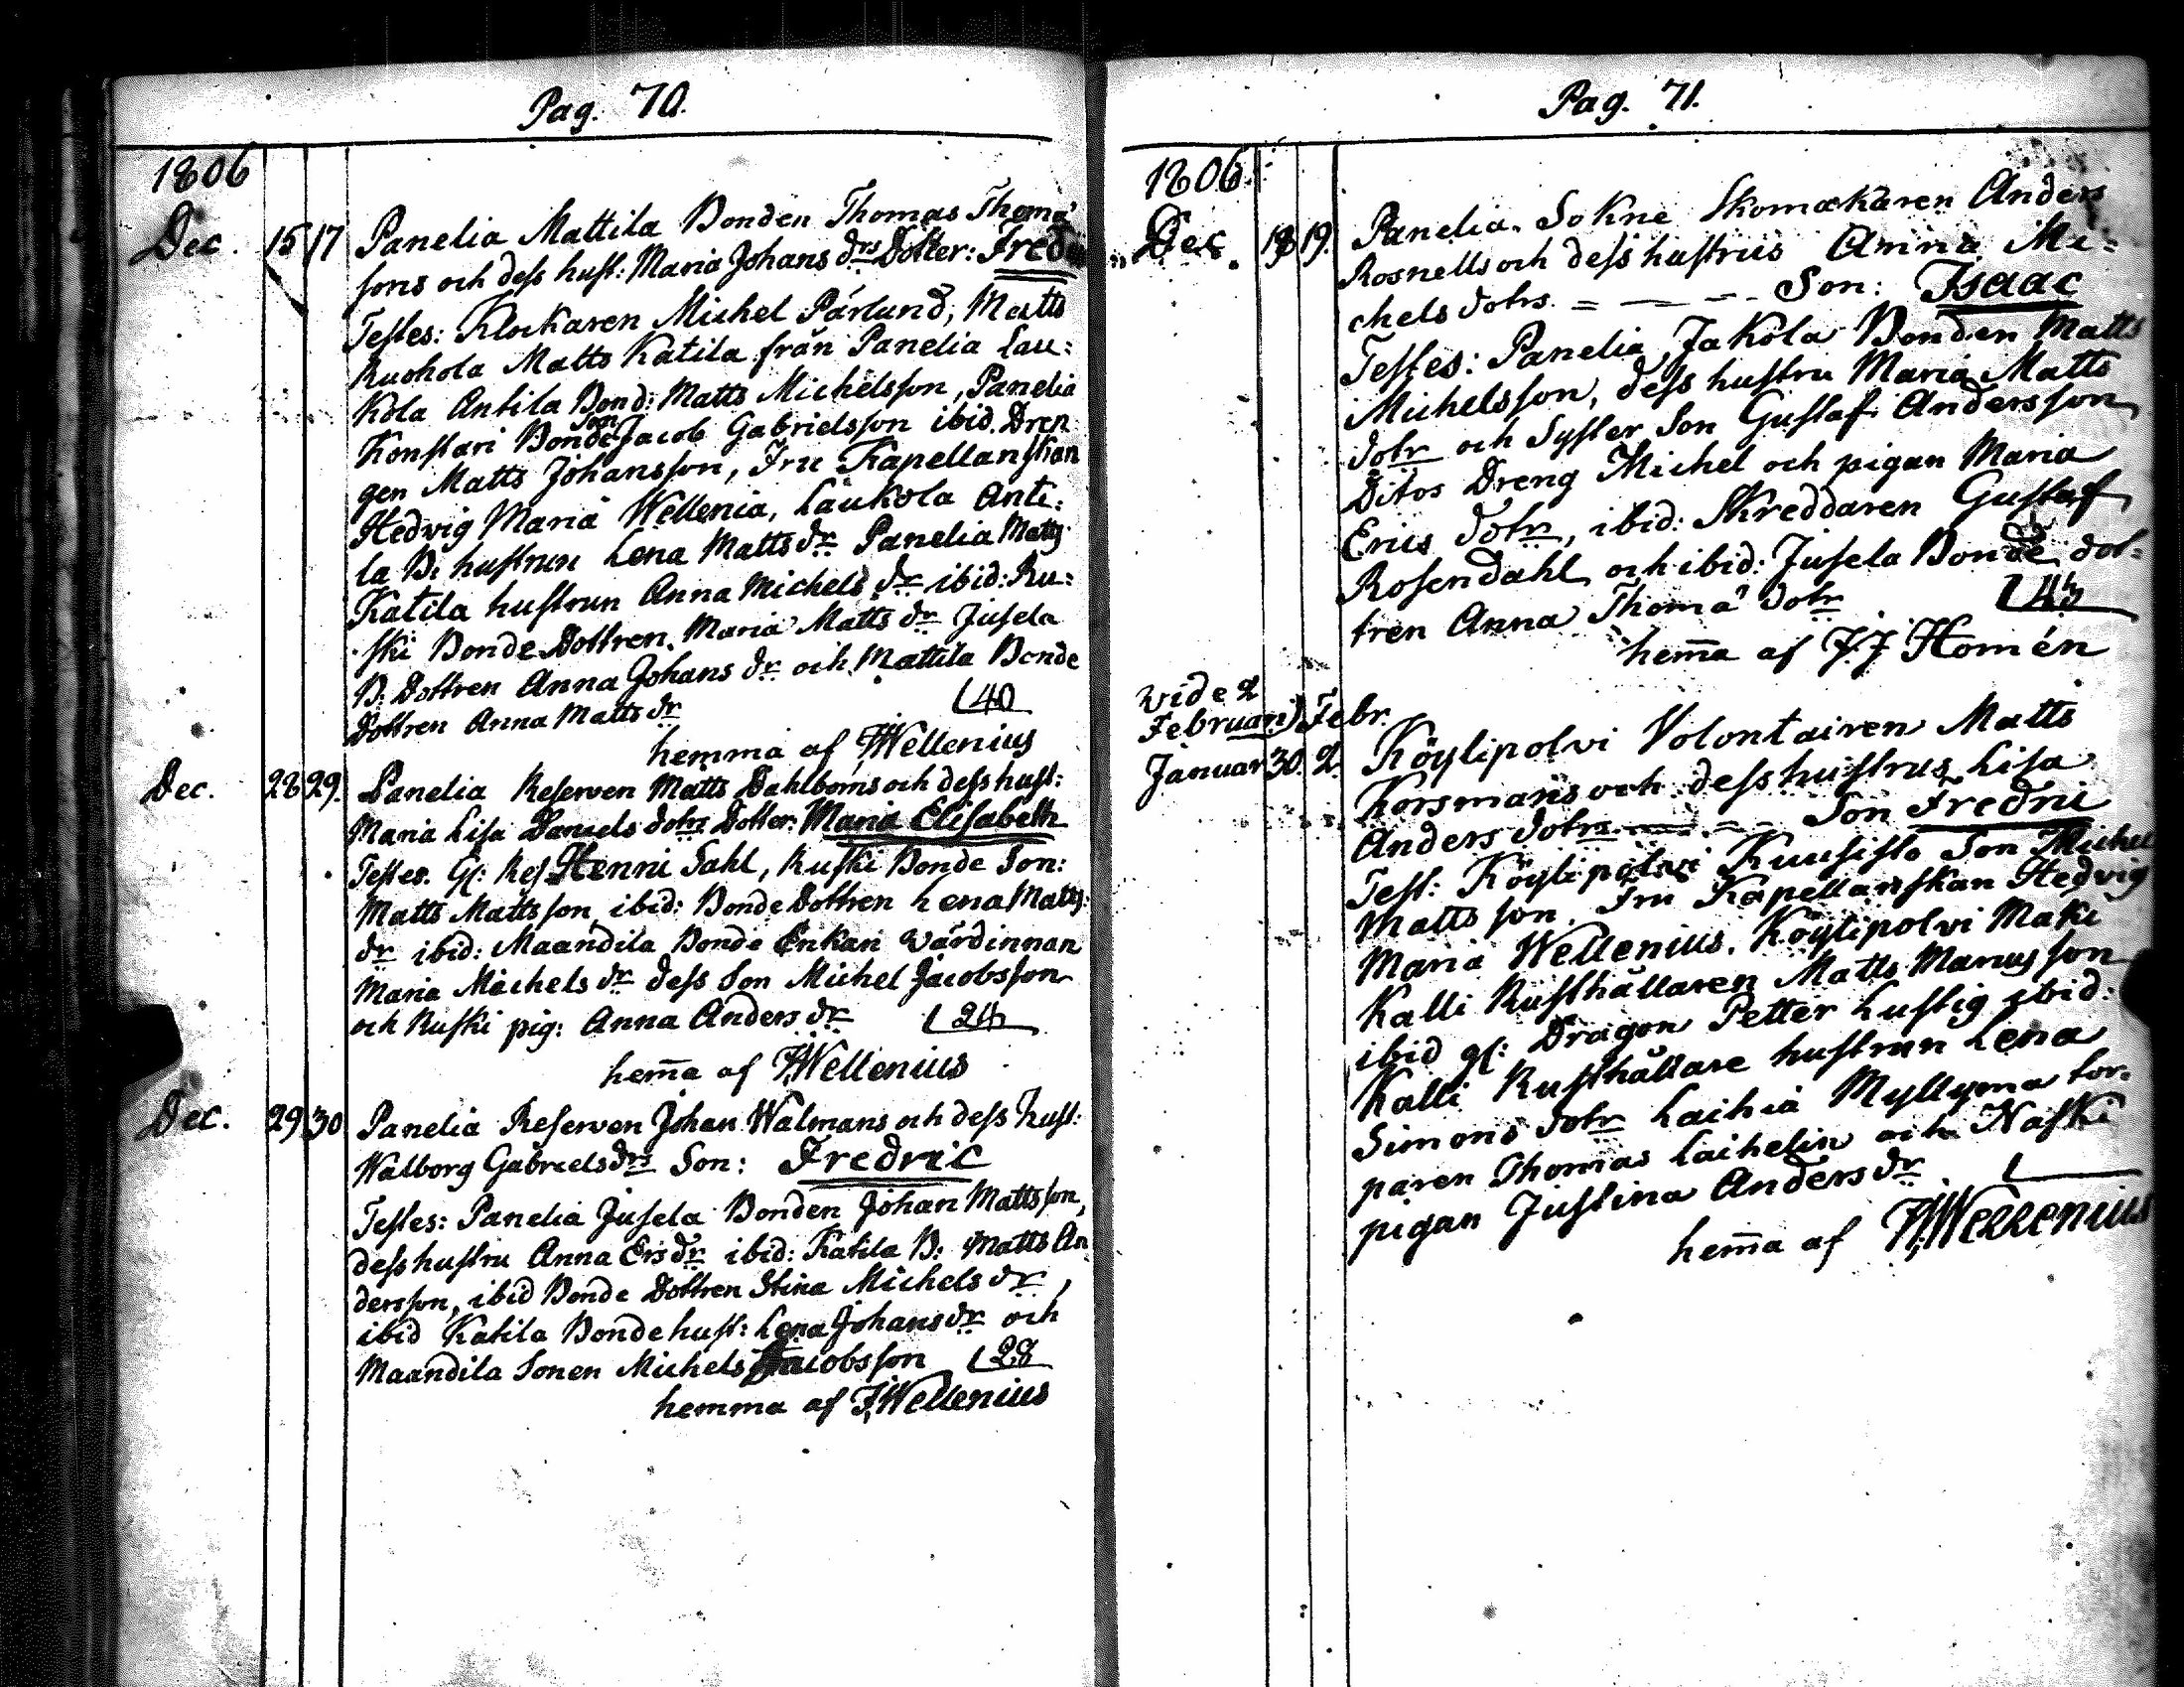 Pag. 70.
1806
Dec. 15 17 Panelia Mattila Bonden Thomas Thomæ
sons och dess hust: Maria Johans drs Dotter:
Testes: Klockaren Michel Pärlund, Matts
Ruohola Matts Katila från Panelia Lau:
kola Antila Bond: Matts Michelsson, Panelia
Konstari Bonde Son Jacob Gabrielsson ibid. Dren
gen Matts Johansson, Fru Kapellanskan
Hedvig Maria Wellenia, Laukola Anti:
la B: hustrun Lena Matts dr Panelia Matts
Katila hustrun Anna Michels dr ibid: Ru:
ski Bonde Dottren Maria Matts dr Jusela
B: Dottren Anna Johans dr och Mattila Bonde
Dottren Anna Matts dr 40
hemma af Wellenius
Dec. 28 29. Panelia Reserven Matts Dahlboms och dess hust:
Maria Lisa Daniels dotrs Dotter: Maria Elisabeth
Testes. Gl: Res Henric Dahl, Ruski Bonde Son:
Matts Mattsson, ibid: Bonde Dottren Lena Matts
dr ibid: Maandila Bonde Enkan Värdinnan
Maria Michels dr dess Son Michel Jacobsson
och Ruski pig: Anna Anders dr 24
hema af Wellenius
Dec. 29 30 Panelia Reserven Johan Walmans och dess hust:
Walborg Gabriels drs Son: Fredric
Testes: Panelia Jusela Bonden Johan Mattsson,
dess hustru Anna Ers dr ibid: Katila B: Matts An
dersson, ibid Bonde Dottren Stina Michels dr,
ibid Katila Bonde hust: Lena Johans dr och
Maandila Sonen Michels Jacobsson 28
hemma af Wellenius
Pag. 71.
1806
Dec. 18 19. Panelia Sokne Skomakaren Anders
Rosnells och dess hustrus Anna Mi-
chels dotrs Son: Isaac
Testes: Panelia Jakola Bonden Matts
Michelsson, dess hustru Maria Matts
dotr och Syster Son Gustaf Andersson
Ditos Dreng Michel och pigan Maria
Erics dotr, ibid: Skreddaren Gustaf
Rosendahl och ibid: Jusela Bonde dot-
tren Anna Thomæ dotr 43
hema af J.J Homén
vide 2
Februari) Febr.
Januar 30. 2. Köylipolvi Volontairen Matts
Korsmans och dess hustrus Lisa
Anders dotrs Son Fredric
Test: Köylipolvi Kuusisto Son Michel
Matts son. Fru Kapellanskan Hedvig
Maria Wellenius. Köylipolvi Maki
Kalli Rusthållaren Matts Marcusson
ibid gl: Dragon Petter Lustig ibid:
Kalli Rusthållare hustrun Lena
Simons dotr Laihia Myllyma tor-
paren Thomas Laihelin och Naski
pigan Justina Anders dr
hema af Wellenius